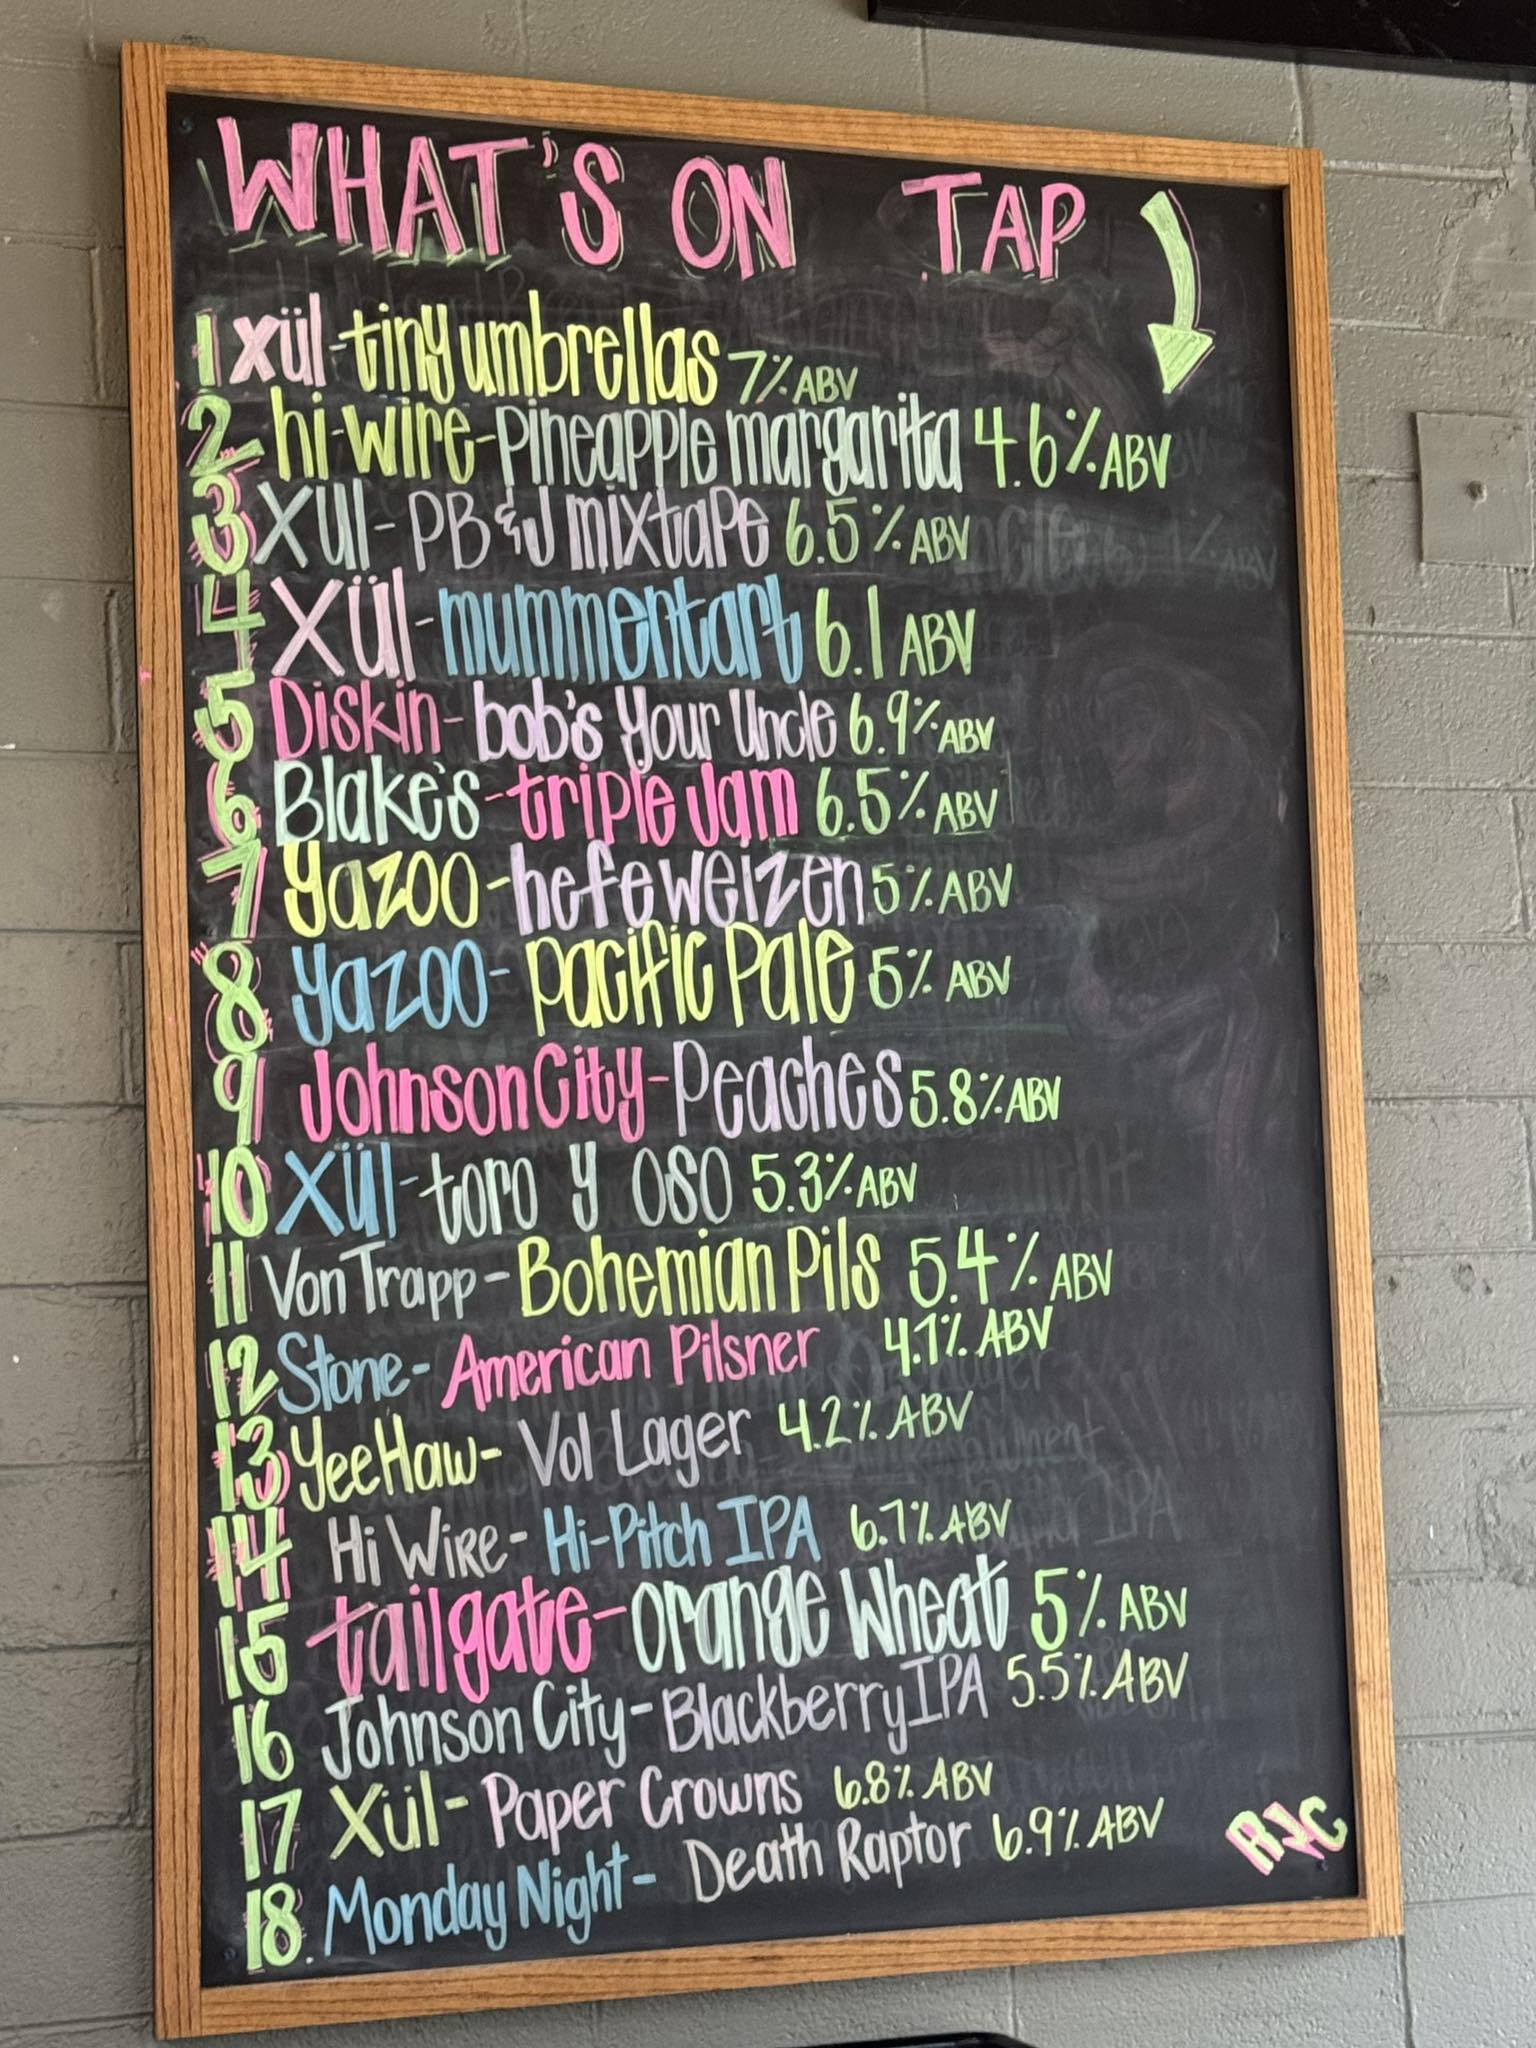 WHAT'S ON TAP
1 xül - tiny umbrellas 7% ABV
2 hi-wire - pineapple margarita 4.6% ABV
3 XÜl - PB & J mixtape 6.5% ABV
4 XÜl - mummentart 6.1 ABV
5 Diskin - bob's your Uncle 6.9% ABV
6 Blake's - triple Jam 6.5% ABV
7 yazoo - hefeweizen 5% ABV
8 yazoo - pacific Pale 5% ABV
9 Johnson City - Peaches 5.8% ABV
10 XÜl - toro y oso 5.3% ABV
11 Von Trapp - Bohemian Pils 5.4% ABV
12 Stone - American Pilsner 4.7% ABV
13 YeeHaw - Vol Lager 4.2% ABV
14 Hi Wire - Hi-Pitch IPA 6.7% ABV
15 tailgate - orange Wheat 5% ABV
16 Johnson City - Blackberry IPA 5.5% ABV
17 Xül - Paper Crowns 6.8% ABV
18. Monday Night - Death Raptor 6.9% ABV